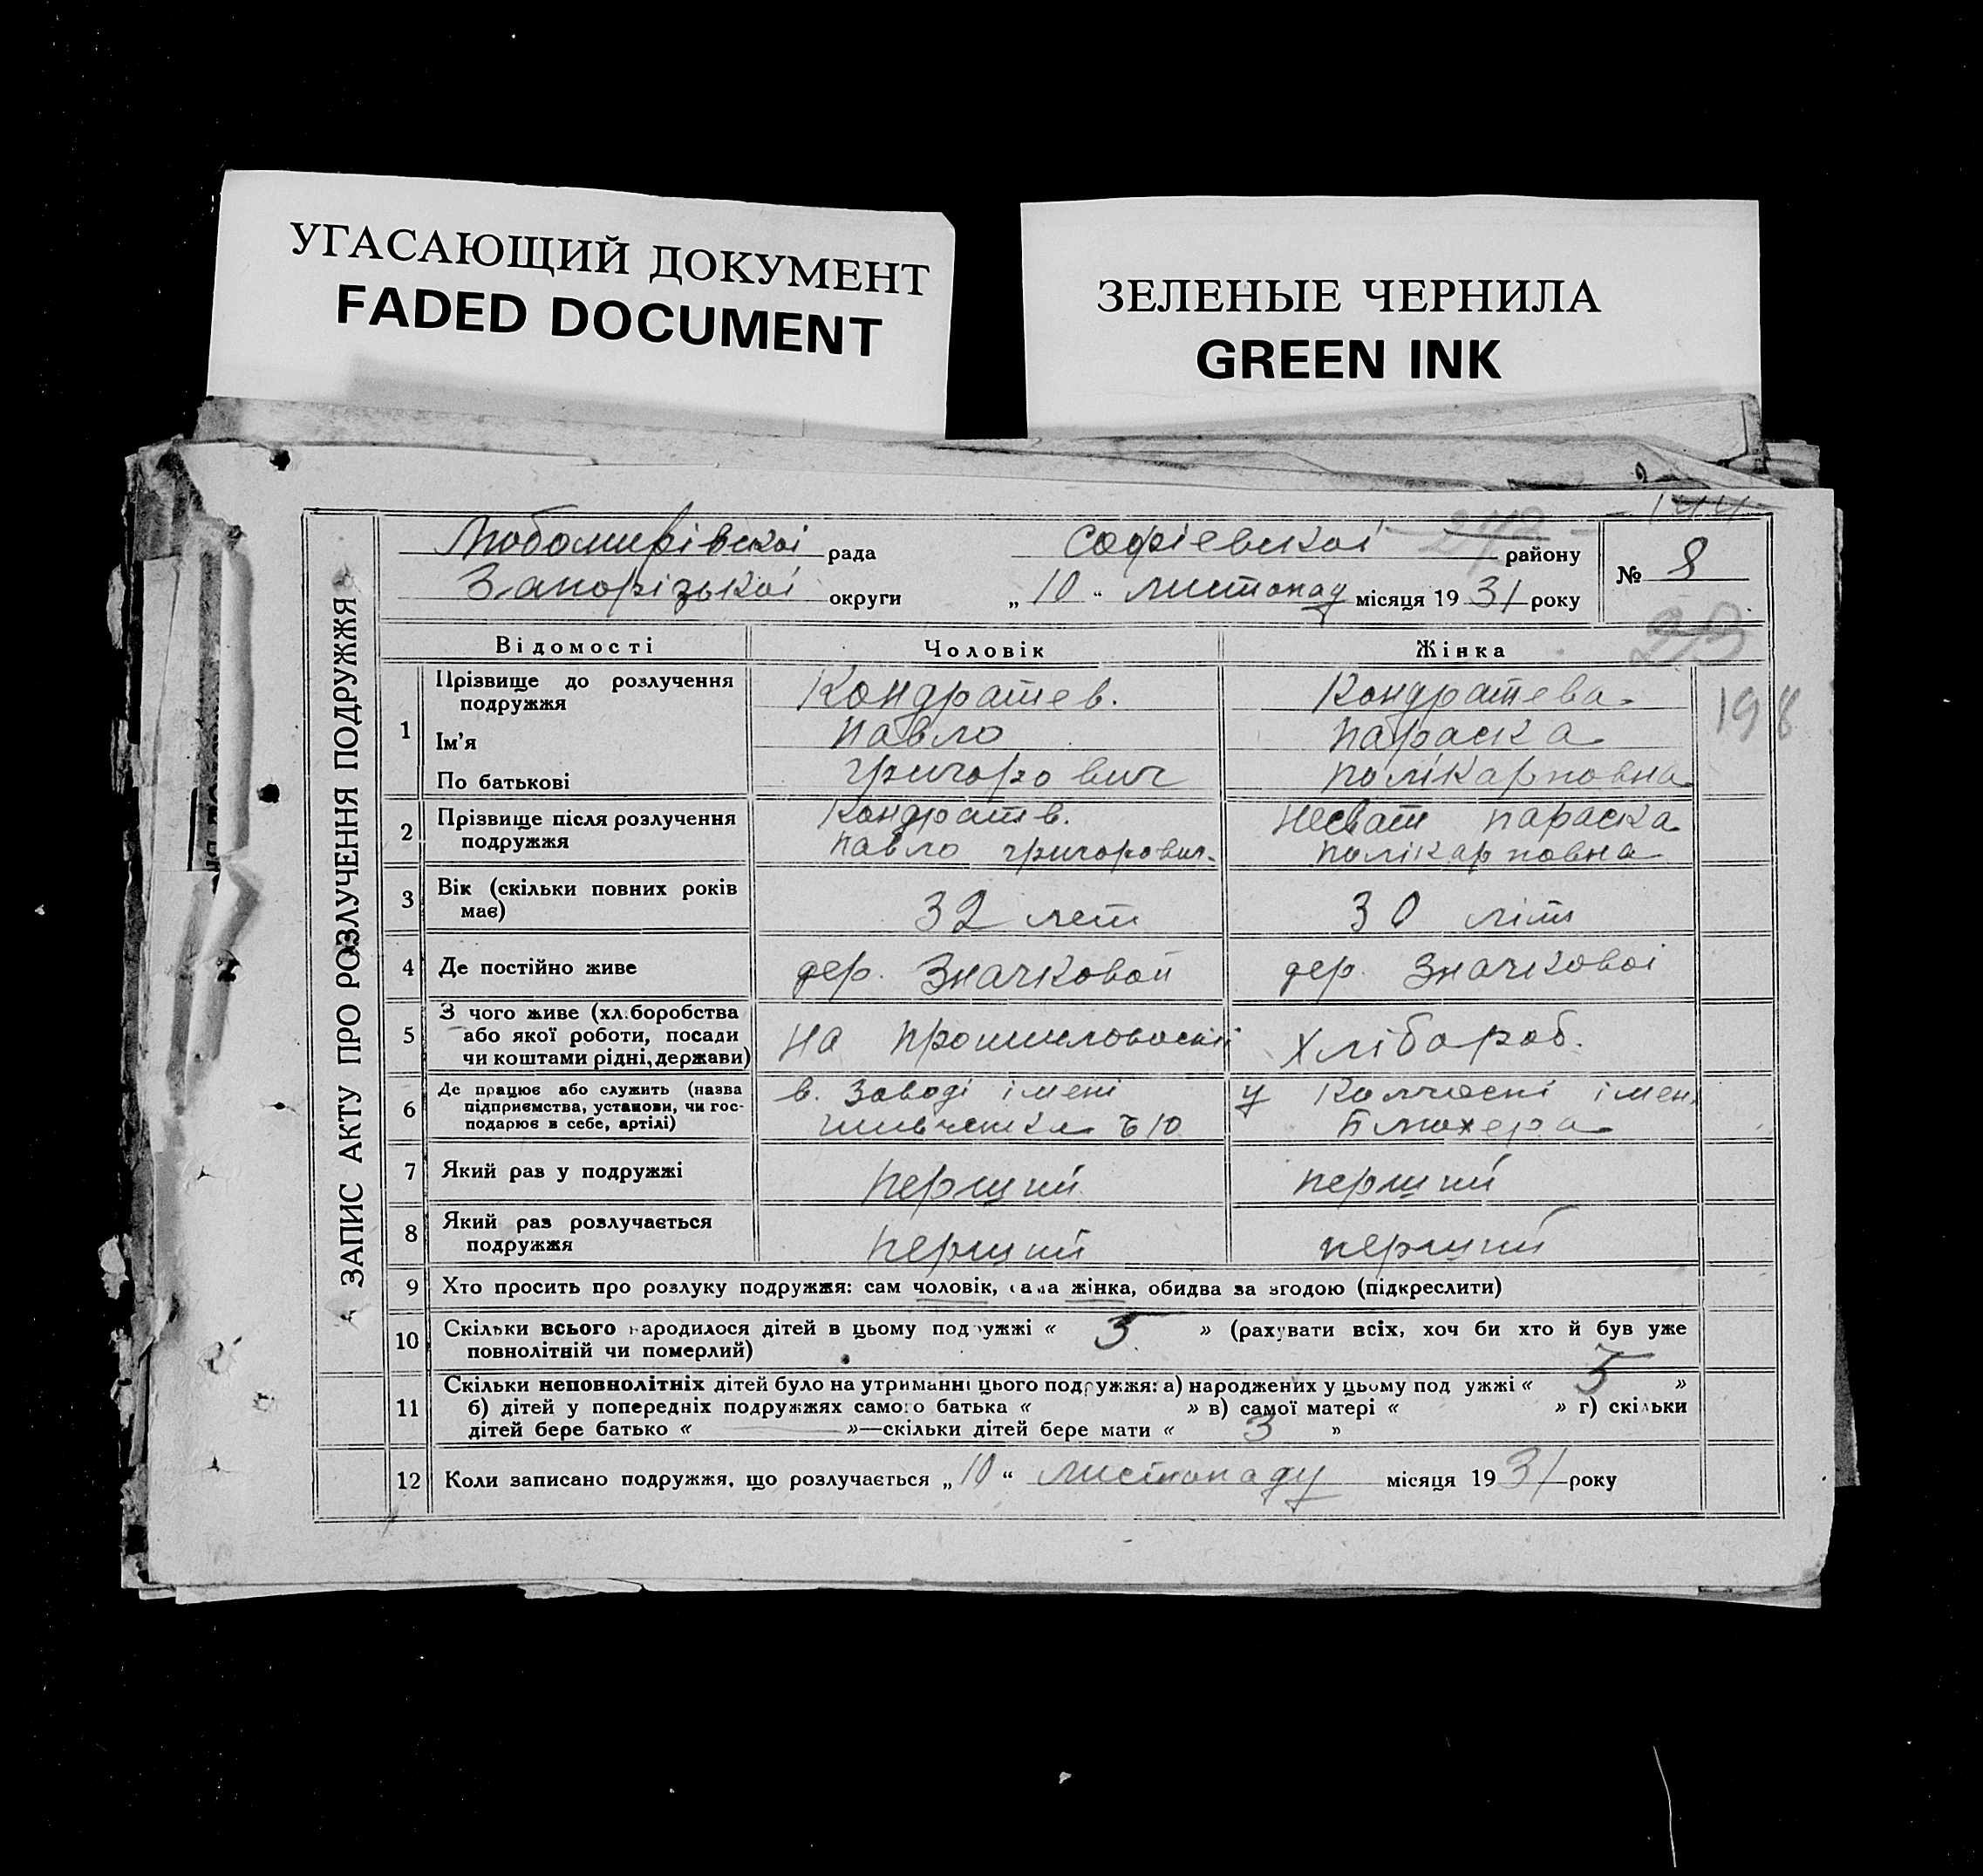 УГАСАЮЩИЙ ДОКУМЕНТ
FADED DOCUMENT
ЗЕЛЕНЫЕ ЧЕРНИЛА
GREEN INK
144
Любомирівскої рада Софіевскої району
№ 8
Запорізької округи „10“ листопад місяця 1931 року
ЗАПИС АКТУ ПРО РОЗЛУЧЕННЯ ПОДРУЖЖЯ
Відомості Чоловік Жінка
198
1 Прізвище до розлучення подружжя Кондратев. Кондратева.
Ім'я Павло Параска
По батькові Григорович Полікарповна
2 Прізвище після розлучення подружжя Кондратв. Несват Параска
Павло Григорович. Полікарповна
3 Вік (скільки повних років має) 32 лет 30 літ
4 Де постійно живе дер. Значковой дер. Значковоі
5 З чого живе (хл.боробства або якої роботи, посади чи коштами рідні, держави) на Хлібороб.
6 Де працює або служить (назва підприємства, установи, чи господарює в себе, артілі) в. Заводі імені у Колгоспі імен.
Блюхера
7 Який раз у подружжі перший перший
8 Який раз розлучається подружжя перший перший
9 Хто просить про розлуку подружжя: сам чоловік, сама жінка, обидва за згодою (підкреслити)
10 Скільки всього народилося дітей в цьому подружжі « 3 » (рахувати всіх, хоч би хто й був уже
повнолітній чи померлий)
11 Скільки неповнолітніх дітей було на утриманні цього подружжя: а) народжених у цьому подружжі « 3 »
б) дітей у попередніх подружжях самого батька « » в) самої матері « » г) скільки
дітей бере батько « — »—скільки дітей бере мати « 3 »
12 Коли записано подружжя, що розлучається „10“ листопаду місяця 1931 року